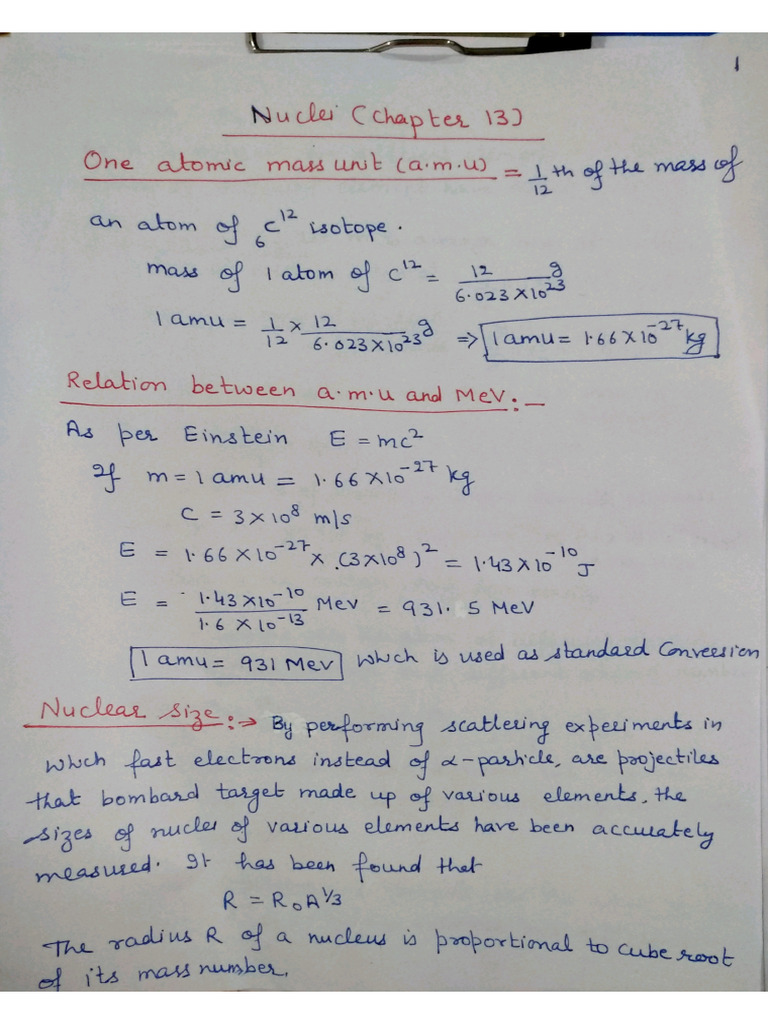 1
Nuclei (Chapter 13)
One atomic mass unit (a.m.u) = 1/12 th of the mass of
an atom of ₆C¹² isotope.
mass of 1 atom of C¹² = 12/(6.023×10²³) g
1 amu = 1/12 × 12/(6.023×10²³) g => 1 amu = 1.66×10⁻²⁷ kg
Relation between a.m.u and MeV:-
As per Einstein E = mc²
If m = 1 amu = 1.66×10⁻²⁷ kg
C = 3×10⁸ m/s
E = 1.66×10⁻²⁷ × (3×10⁸)² = 1.43×10⁻¹⁰ J
E = (1.43×10⁻¹⁰)/(1.6×10⁻¹³) MeV = 931.5 MeV
1 amu = 931 MeV which is used as standard Conversion
Nuclear size:→ By performing scattering experiments in
which fast electrons instead of α-particle, are projectiles
that bombard target made up of various elements, the
sizes of nuclei of various elements have been accurately
measured. It has been found that
R = R₀A^1/3
The radius R of a nucleus is proportional to cube root
of its mass number.